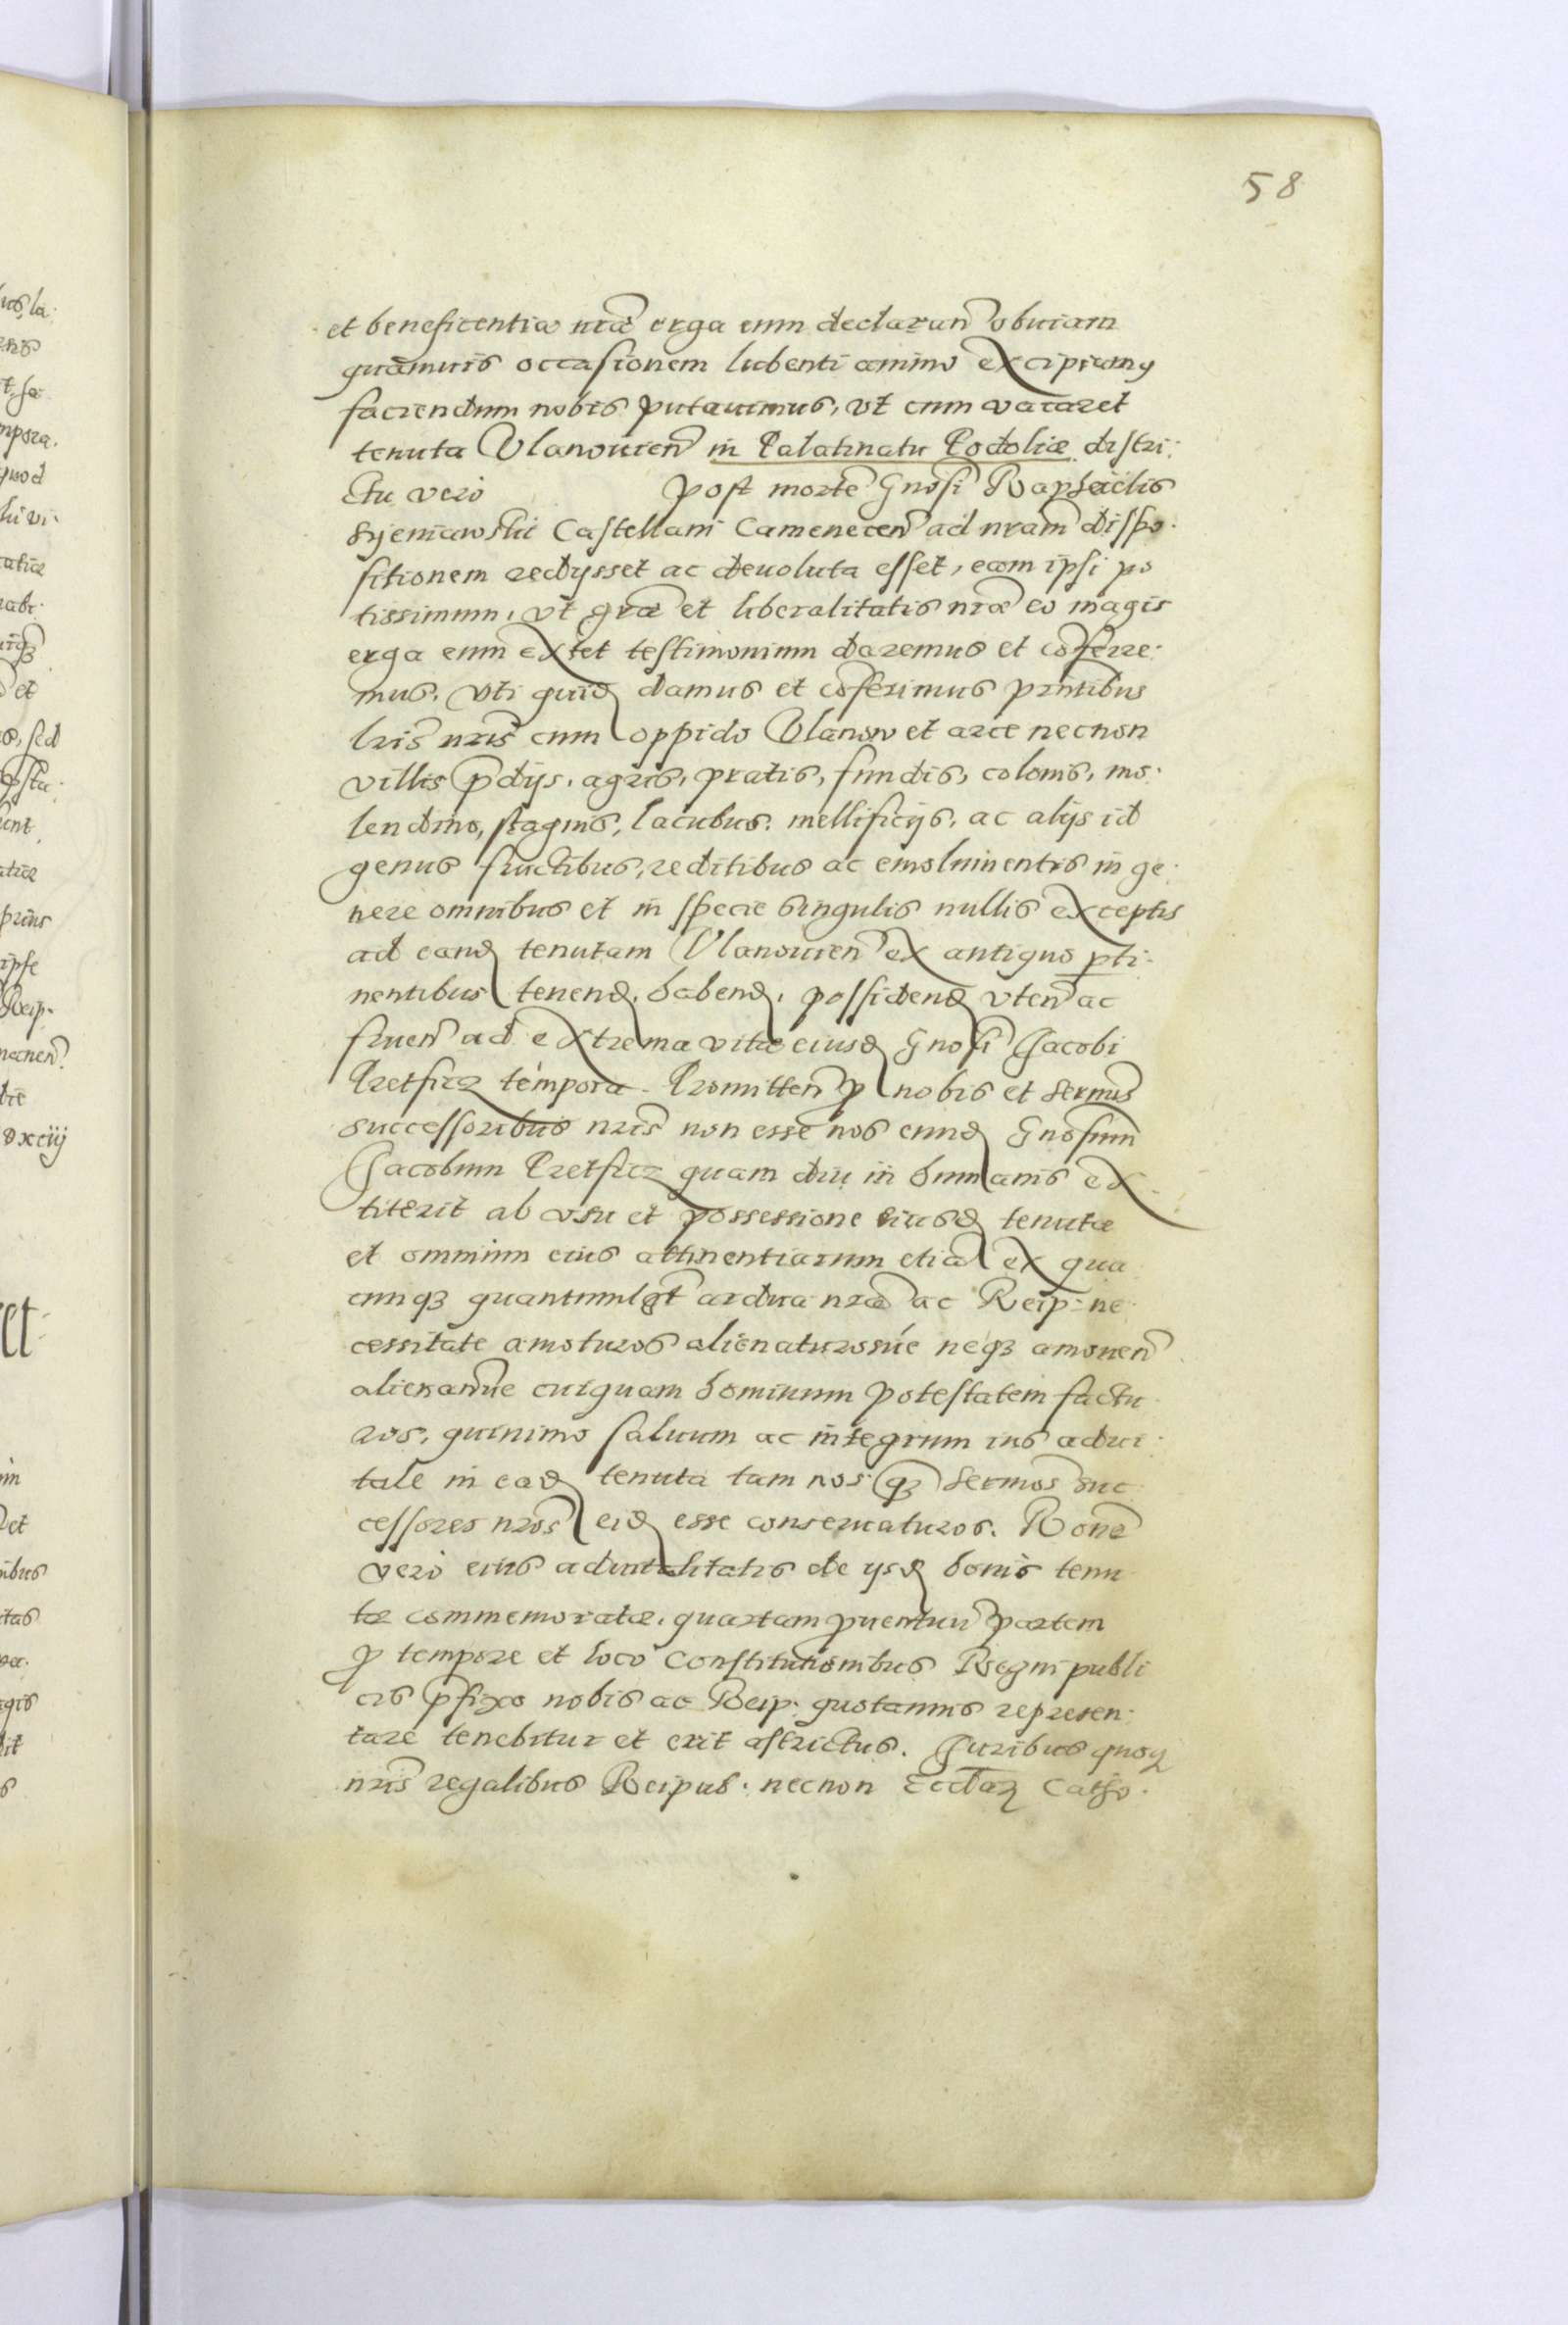 58
et beneficentiæ nr̃æ erga eum declaran̄ obuiam
quāmuis occasionem lubenti animo excipiamꝰ
faciendum nobis putauimus, vt cum vacaret
tenuta Vlanouien̄ in Palatinatu Podoliæ distri:
ctu vero post mortē Gnosi Raphaelis
Syeniawskii Castellani Camenecen̄ ad nram̄ dispo:
sitionem redijsset ac deuoluta esset, eam ipsi po
tissimum, vt gr̃æ et liberalitatis nr̃æ eo magis
erga eum extet testimonium daremus et cōferre:
mus. Vti quid̨ damus et cōferimus prn̄tibus
lris̄ nris̄ cum oppido Vlanow et arce necnon
villis p̄dijs, agris, pratis, fundis, colonis, mo:
lendino, stagnis, lacubus, mellificijs, ac alijs id
genus fructibus, reditibus ac emolumentis in ge:
nere omnibus et in specie singulis nullis exceptis
ad eand̨ tenutam Vlanouien̄ ex antiquo ꝑti:
nentibus tenend̨, habend̨, possidend̨ vten̄ ac
fruen̄ ad extrema vitæ eiusd̨ Gnosi Jacobi
Pretficz tempora. Promitten̄ ꝓ nobis et sermis̄
successoribus nris̄ non esse nos eund̨ Gnosum
Jacobum Pretficz quam diu in humanis ex
titerit ab vsu et possessione eiusd̨ tenutæ
et omnium eius attinentiarum etiā ex qua
cunqꝫ quantumlꝫt ardua nrā ac Reip: ne
cessitate amoturos alienaturosúe neqꝫ amouen̄
alienan̄ue cuiquam hominum potestatem factu
ros, quinimo saluum ac integrum ius adui:
tale in ead̨ tenuta tam nos qꝫ̄ sermos̄ suc
cessores nros̄ eid̨ esse conseruaturos. Ronē
vero eius aduitalitatis de ijsd̨ bonis tenu
tæ commemoratæ, quartam ꝓuentuū partem
ꝓ tempore et loco Constitutionibus Regni publi
cis p̄fixo nobis ac Reip: quotannis represen:
tare tenebitur et erit astrictus. Juribus quoqꝫ
nris̄ regalibus Reipub: necnon Eccłaꝝ Catho: